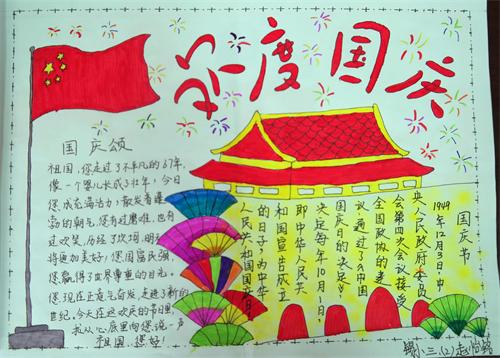 欢度国庆
国庆颂
祖国,您走过了不平凡的67年,
像一个婴儿长成了壮年,今日
您成充满活力,散发着蓬
勃的朝气,您有过磨难,也有
过欢笑,历经了坎坷,明天
将更加美好!您国富民强
您赢得了世界尊重的目光。
您现在正意气奋发,走进了新的
世纪,今天在这欢庆的节日里,
我从心底里向您说一声
祖国,您好!
国庆节
1949年12月3日,中
央人民政府委员
会第四次会议接受
全国政协的建
议通过了《中国
国庆日的决定》
决定每年10月1日,
即中华人民共
和国宣告成立
的日子,为中华
人民共和国国庆日
三(2)